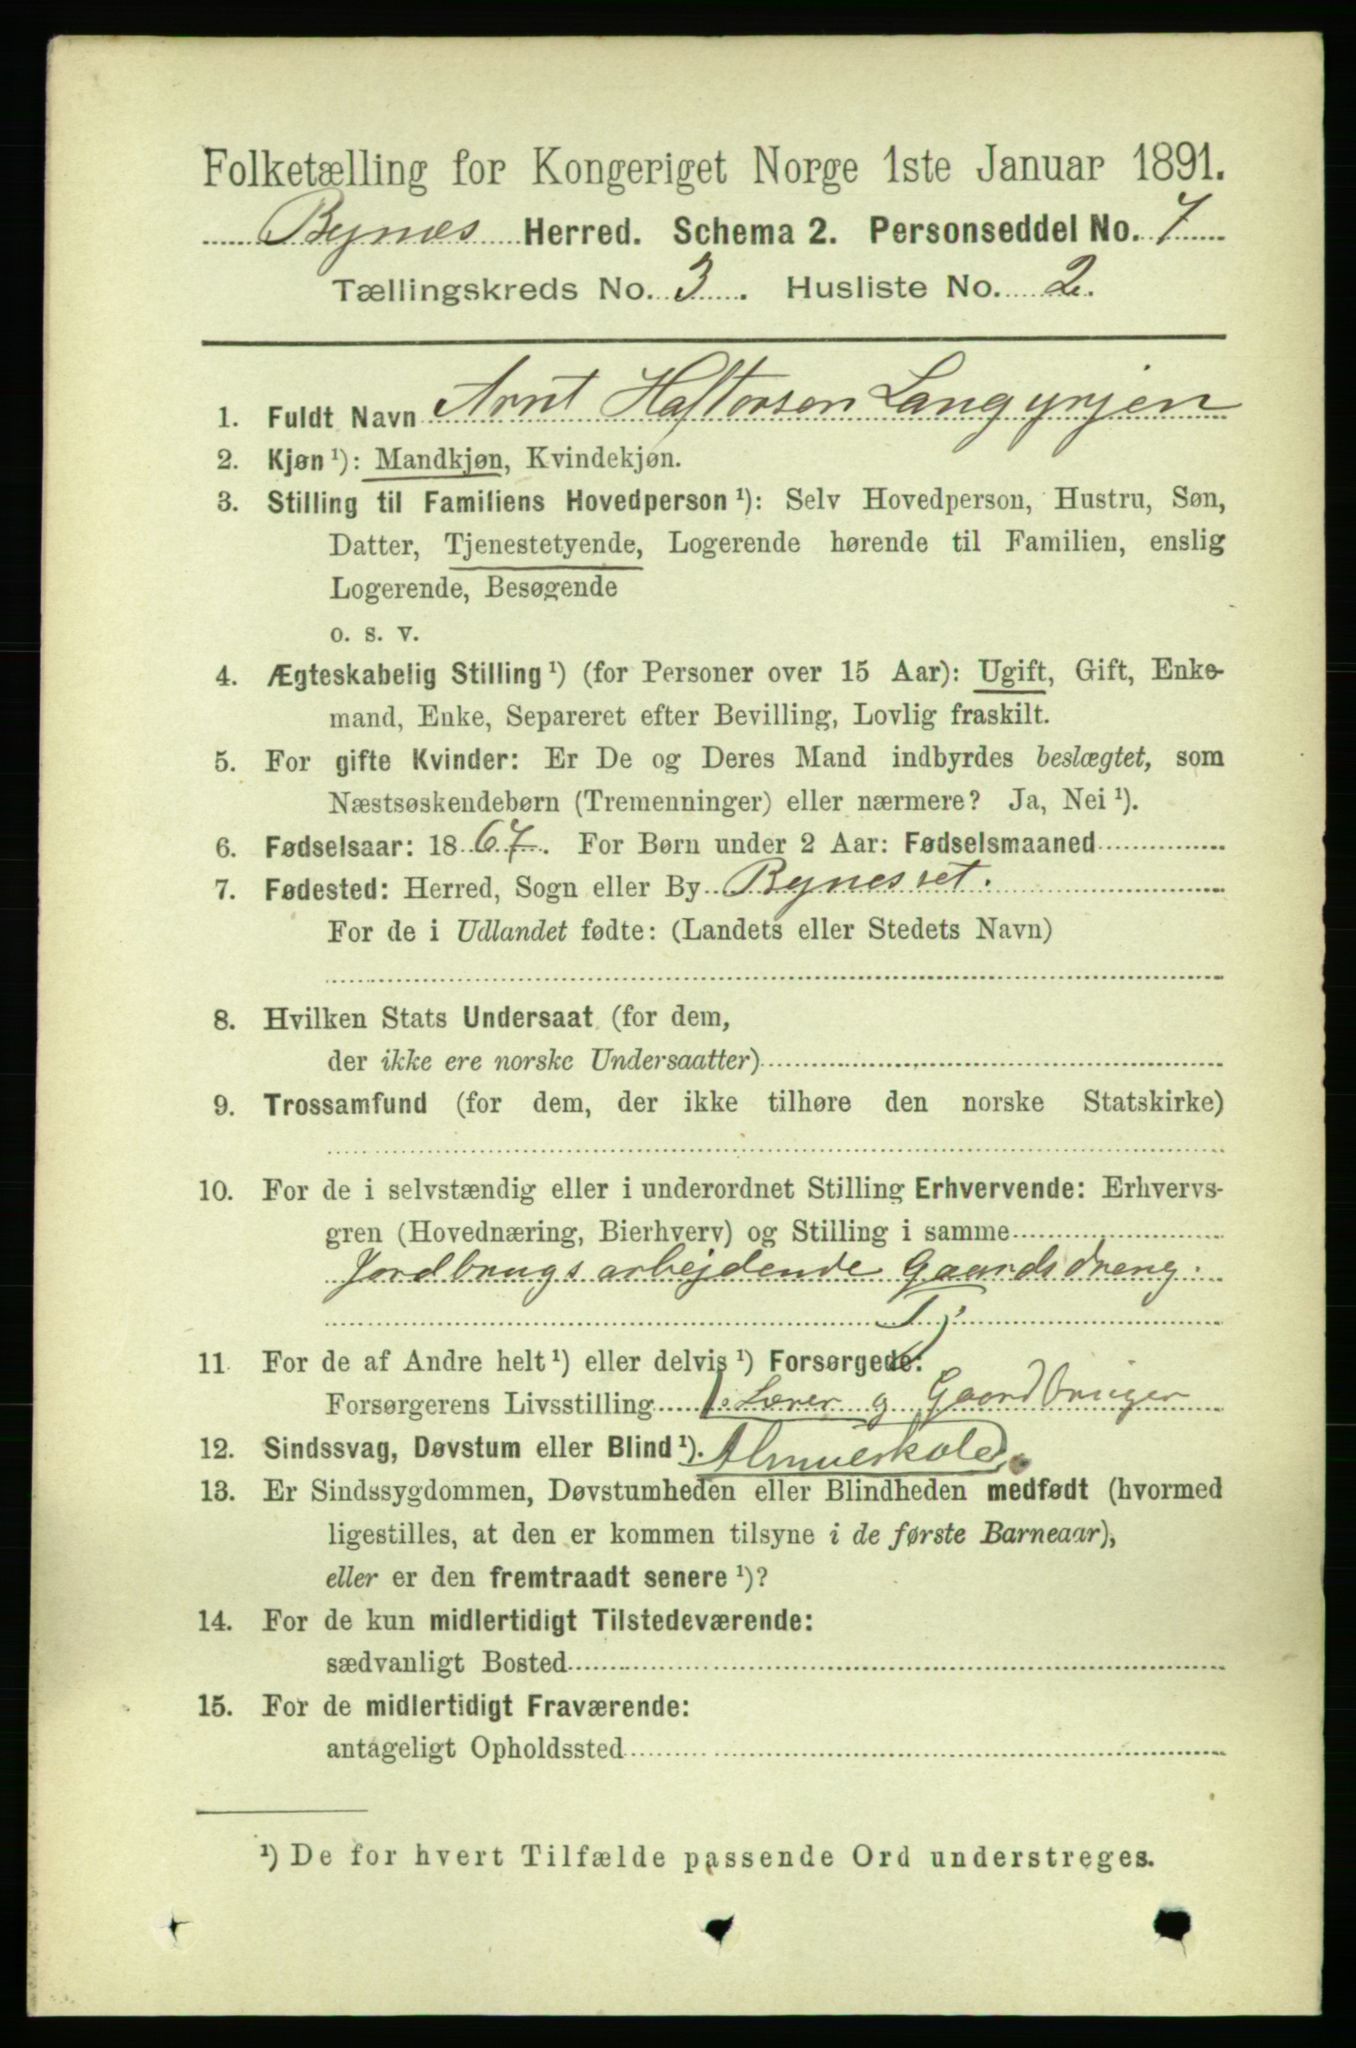 Folketælling for Kongeriget Norge 1ste Januar 1891.
Bynæs Herred. Schema 2. Personseddel No. 7
Tællingskreds No. 3. Husliste No. 2.
1. Fuldt Navn Arnt Haftorsen Langørjen
2. Kjøn ¹): Mandkjøn, Kvindekjøn.
3. Stilling til Familiens Hovedperson ¹): Selv Hovedperson, Hustru, Søn,
Datter, Tjenestetyende, Logerende hørende til Familien, enslig
Logerende, Besøgende
o. s. v.
4. Ægteskabelig Stilling ¹) (for Personer over 15 Aar): Ugift, Gift, Enke-
mand, Enke, Separeret efter Bevilling, Lovlig fraskilt.
5. For gifte Kvinder: Er De og Deres Mand indbyrdes beslægtet, som
Næstsøskendebørn (Tremenninger) eller nærmere? Ja, Nei ¹).
6. Fødselsaar: 1867. For Børn under 2 Aar: Fødselsmaaned
7. Fødested: Herred, Sogn eller By Bynesset.
For de i Udlandet fødte: (Landets eller Stedets Navn)
8. Hvilken Stats Undersaat (for dem,
der ikke ere norske Undersaatter)
9. Trossamfund (for dem, der ikke tilhøre den norske Statskirke)
10. For de i selvstændig eller i underordnet Stilling Erhvervende: Erhvervs-
gren (Hovednæring, Bierhverv) og Stilling i samme
Jordbrugsarbejdende Gaardsdreng.
Tj
11. For de af Andre helt ¹) eller delvis ¹) Forsørgede:
Forsørgerens Livsstilling Lærer g Gaardbruger
12. Sindssvag, Døvstum eller Blind ¹). Almueskole
13. Er Sindssygdommen, Døvstumheden eller Blindheden medfødt (hvormed
ligestilles, at den er kommen tilsyne i de første Barneaar),
eller er den fremtraadt senere ¹)?
14. For de kun midlertidigt Tilstedeværende:
sædvanligt Bosted
15. For de midlertidigt Fraværende:
antageligt Opholdssted
¹) De for hvert Tilfælde passende Ord understreges.